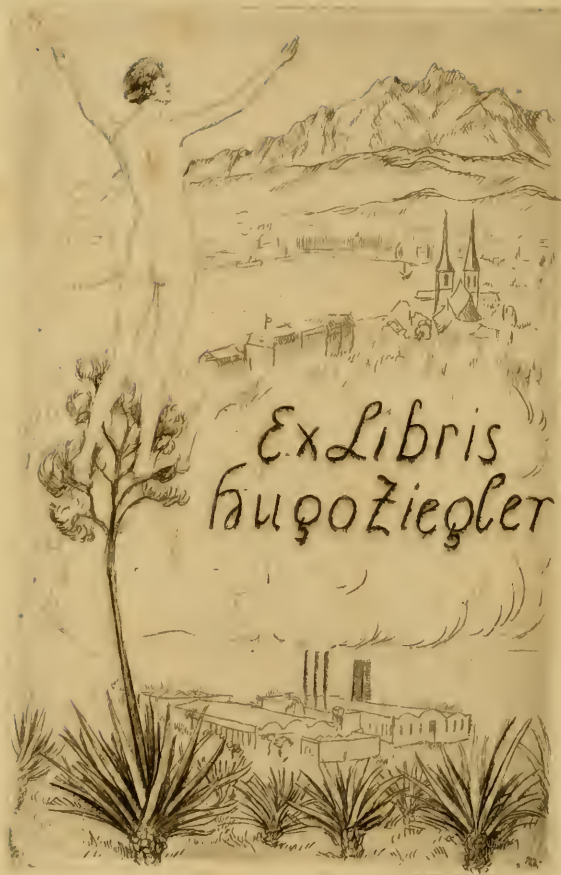 Ex Libris
Hugo Ziegler